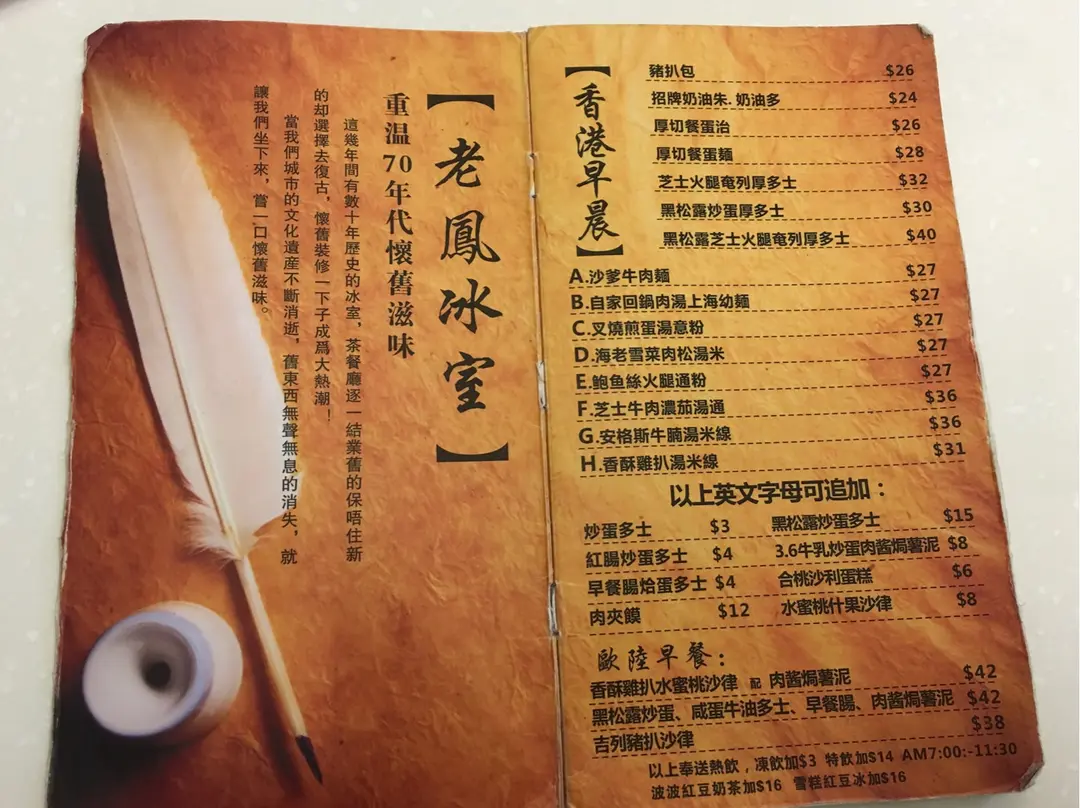 【老鳳冰室】
重温70年代懷舊滋味
這幾年間有數十年歷史的冰室，茶餐廳逐一結業舊的保唔住新
的却選擇去復古，懷舊裝修一下子成爲大熱潮！
當我們城市的文化遺産不斷消逝，舊東西無聲無息的消失，就
讓我們坐下來，嘗一口懷舊滋味。
【香港早晨】
豬扒包 $26
招牌奶油朱. 奶油多 $24
厚切餐蛋治 $26
厚切餐蛋麵 $28
芝士火腿奄列厚多士 $32
黑松露炒蛋厚多士 $30
黑松露芝士火腿奄列厚多士 $40
A.沙爹牛肉麵 $27
B.自家回鍋肉湯上海幼麵 $27
C.叉燒煎蛋湯意粉 $27
D.海老雪菜肉松湯米 $27
E.鮑魚絲火腿通粉 $27
F.芝士牛肉濃茄湯通 $36
G.安格斯牛腩湯米線 $36
H.香酥雞扒湯米線 $31
以上英文字母可追加：
炒蛋多士 $3 黑松露炒蛋多士 $15
紅腸炒蛋多士 $4 3.6牛乳炒蛋肉酱焗薯泥 $8
早餐腸烚蛋多士 $4 合桃沙利蛋糕 $6
肉夾饃 $12 水蜜桃什果沙律 $8
歐陸早餐：
香酥雞扒水蜜桃沙律 配 肉酱焗薯泥 $42
黑松露炒蛋、咸蛋牛油多士、早餐腸、肉酱焗薯泥 $42
吉列豬扒沙律 $38
以上奉送熱飲，凍飲加$3 特飲加$14 AM7:00:-11:30
波波紅豆奶茶加$16 雪糕紅豆冰加$16